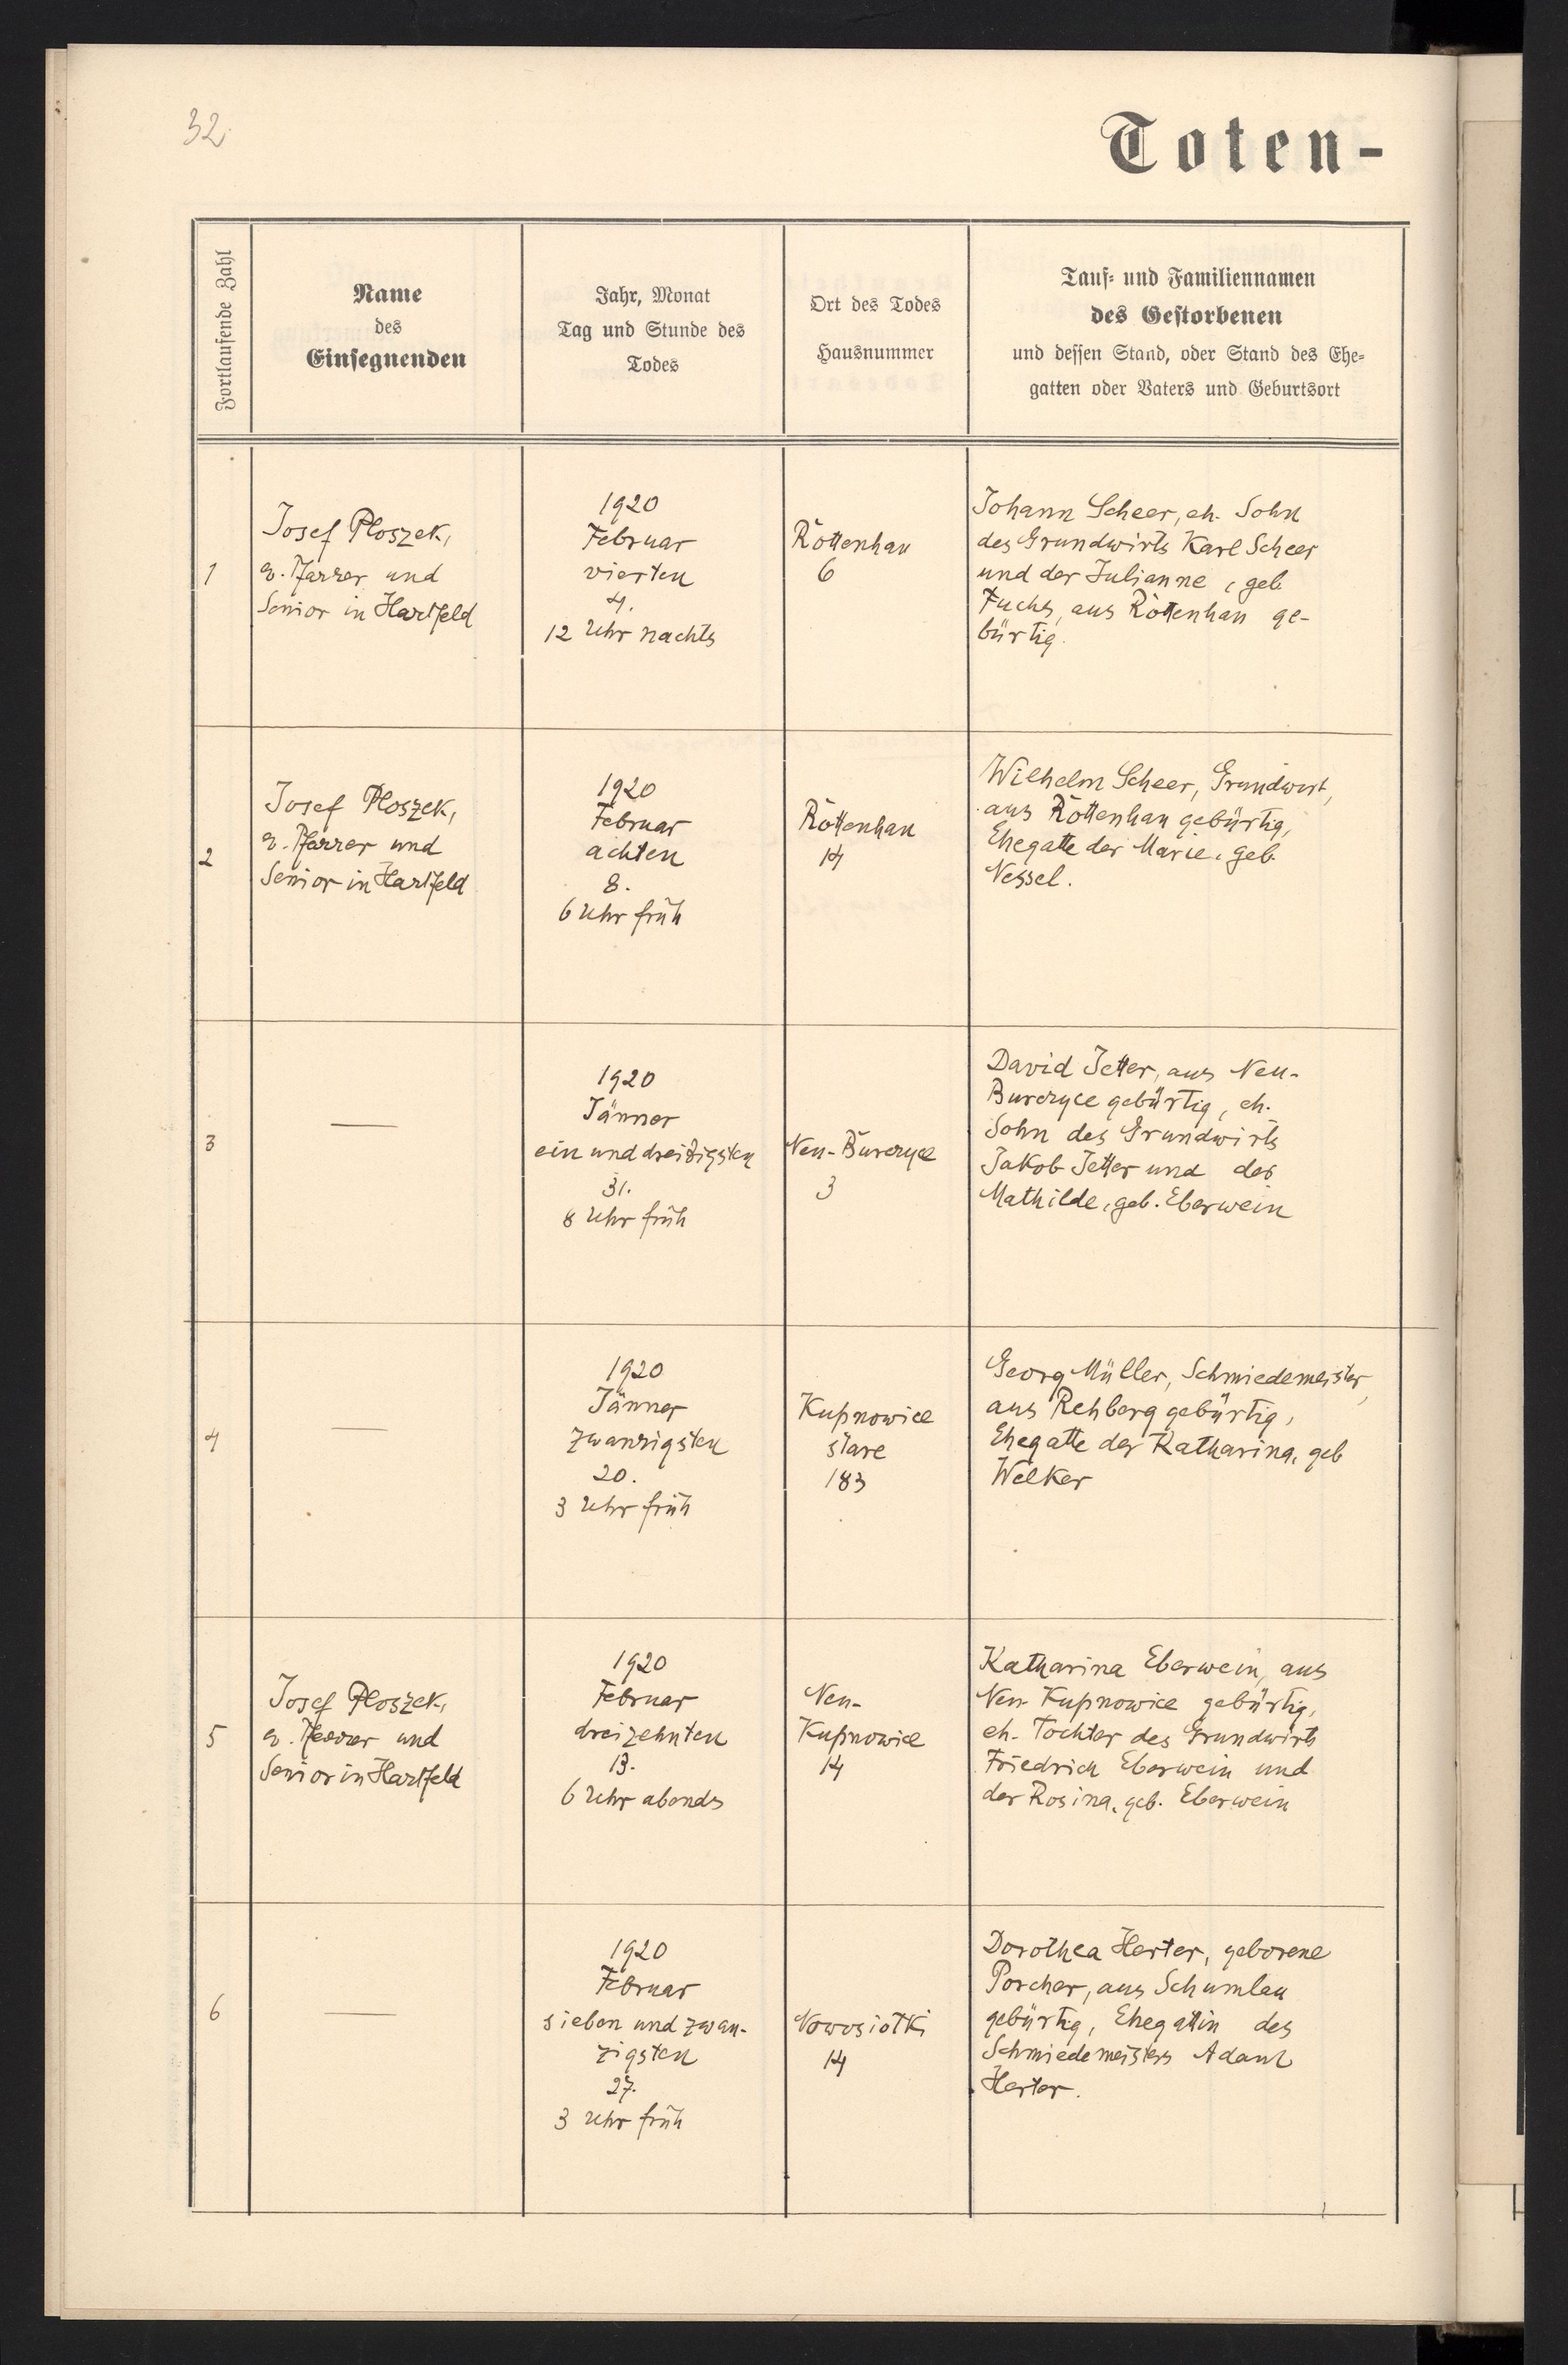 32.
Toten-
Fortlaufende Zahl
Name
des
Einsegnenden
Jahr, Monat
Tag und Stunde des
Todes
Ort des Todes
Hausnummer
Tauf- und Familiennamen
des Gestorbenen
und dessen Stand, oder Stand des Ehe-
gatten oder Vaters und Geburtsort
1
Josef Ploszek,
ev. Pfarrer und
Senior in Hartfeld
1920
Februar
vierten
4.
12 Uhr nachts
Rottenhan
6
Johann Scheer, eh. Sohn
des Grundwirts Karl Scheer
und der Julianne, geb.
Fuchs, aus Rottenhan ge-
bürtig.
2
Josef Ploszek,
ev. Pfarrer und
Senior in Hartfeld
1920
Februar
achten
8.
6 Uhr früh
Rottenhan
14
Wilhelm Scheer, Grundwirt,
aus Rottenhan gebürtig,
Ehegatte der Marie, geb.
Nessel.
3
—
1920
Jänner
ein und dreißigsten
31.
8 Uhr früh
Neu-Burczyce
3
David Jetter, aus Neu-
Burczyce gebürtig, eh.
Sohn des Grundwirts
Jakob Jetter und der
Mathilde, geb. Eberwein
4
—
1920
Jänner
zwanzigsten
20.
3 Uhr früh
Kupnowice
stare
183
Georg Müller, Schmiedemeister,
aus Rehberg gebürtig,
Ehegatte der Katharina, geb
Welker
5
Josef Ploszek,
ev. Pfarrer und
Senior in Hartfeld
1920
Februar
dreizehnten
13.
6 Uhr abends
Neu-
Kupnowice
14
Katharina Eberwein, aus
Neu-Kupnowice gebürtig,
eh. Tochter des Grundwirts
Friedrich Eberwein und
der Rosina, geb. Eberwein
6
—
1920
Februar
sieben und zwan-
zigsten
27.
3 Uhr früh
Nowosiółki
14
Dorothea Herter, geborene
Porcher, aus Schumlau
gebürtig, Ehegattin des
Schmiedemeisters Adam
Herter.